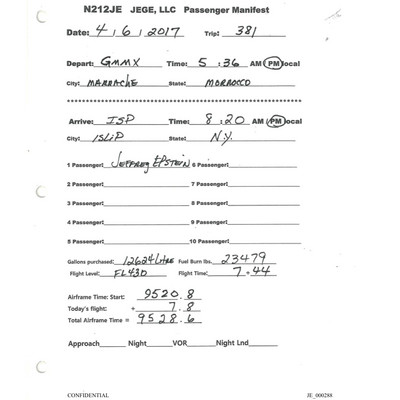 N212JE JEGE, LLC Passenger Manifest
Date: 4 / 6 / 2017 Trip: 381
Depart: GMMX Time: 5 : 36 AM PM local
City: MARRACHE State: MOROCCO
Arrive: ISP Time: 8 : 20 AM PM local
City: ISLIP State: N.Y.
1 Passenger: JEFFREY EPSTEIN 6 Passenger:
2 Passenger: 7 Passenger:
3 Passenger: 8 Passenger:
4 Passenger: 9 Passenger:
5 Passenger: 10 Passenger:
Gallons purchased: 12624 LITRE Fuel Burn lbs. 23479
Flight Level: FL430 Flight Time: 7 + 44
Airframe Time: Start: 9520.8
Today's flight: + 7.8
Total Airframe Time = 9528.6
Approach Night VOR Night Lnd
CONFIDENTIAL JE_000288